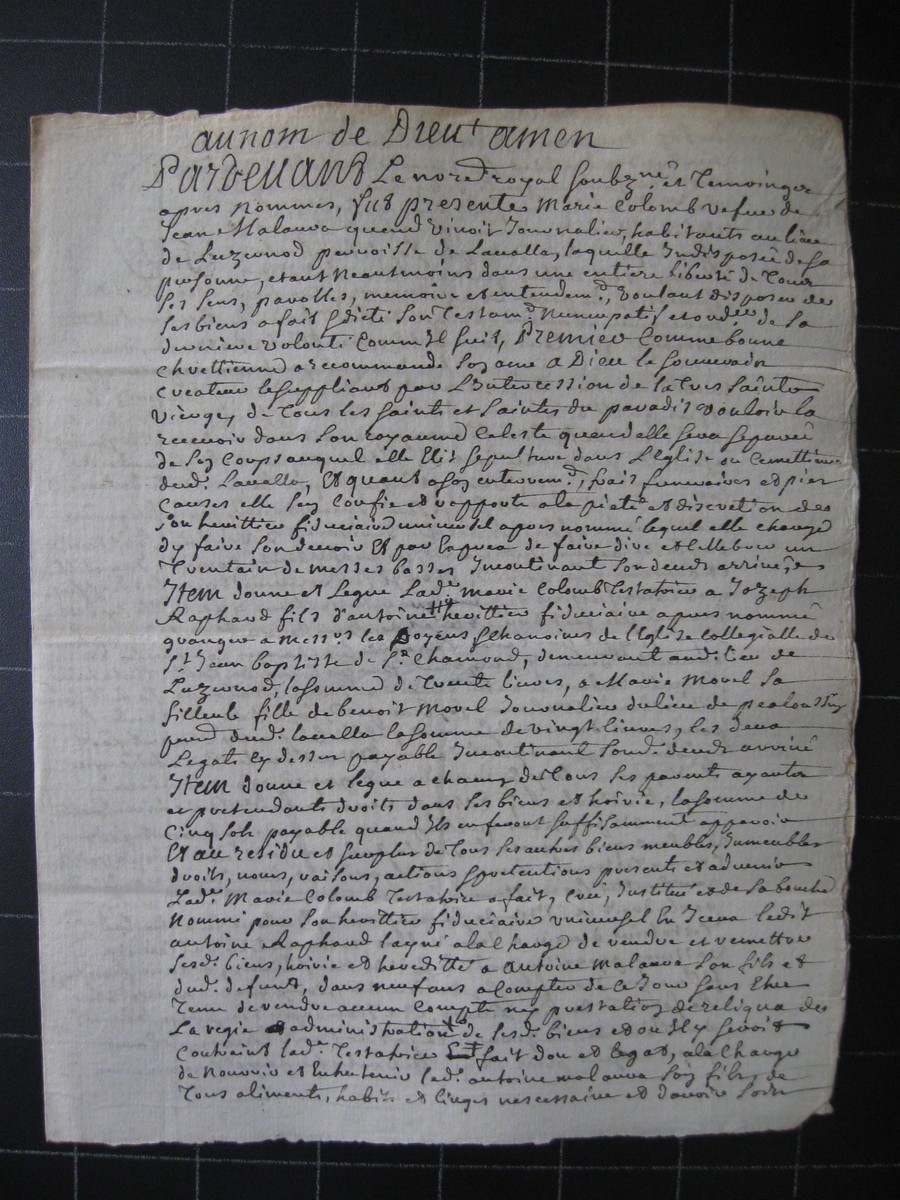 au nom de Dieu amen
Pardevant Le no.re royal soubz.né et Temoings
apres Nommes, fut presente Marie Colomb vefue de
Jean Malauva quand vivoit Journalier, habitants au lieu
de Luzernod parroisse de Lavalla, laquelle Indisposée de sa
personne, etant Neautmoins dans une entiere liberté de Tous
ses sens, parolles, memoire et entendem.t, voulant disposer de
ses biens a fait & dicté son Testam.t Nuncupatif et ord.re de sa
derniere volonté comm'Il suit, Premier Comme bonne
Chrettienne a recommandé son ame a Dieu le souverain
Createur le suppliant par L'Intercession de la tres sainte
Vierge, de Tous les saints et saintes du paradis vouloir la
recevoir dans son royaume Celeste quand elle sera separée
de son Corps auquel elle Elit sepulture dans L'Eglise ou Cemettiere
dud. Lavalla, Et quant a son enterrem.t, frais funeraires et pies
Causes elle s'en Confie et rapporte a la pieté et discretion de
son herittier fiduciaire universel apres nommé lequel elle charge
d'y faire son devoir Et par exprea de faire dire et cellebrer un
Trentain de messes basses Incontinant son deceds arrivé,
Item donne et Legue Lad. marie Colomb Testatrice a Jozeph
Raphard fils d'antoine herittier fiduciaire apres nommé
granger a Mess.rs les Doyens & Chanoines de l'Eglise collegialle de
S.t Jean baptiste de S.t Chamond, demeurant aud. lieu de
Luzernod, la somme de Trente livres, a Marie Morel sa
filleule fille de benoit Morel Journalier du lieu de
parr. dud. lavalla la somme de vingt livres, les deux
Legats cy dessus payable Incontinant sond. deceds arrivé
Item donne et legue a chacung de Tous ses parents ayants
et pretendants droits dans ses biens et hoirie, la somme de
Cinq sols payable quand Ils en feront suffisamment apparoir
Et au residu et surplus de Tous ses autres biens meubles, Immeubles
droits, noms, raisons, actions & pretentions presents et advenir
Lad. Marie Colomb Testatrice a fait, creé, Institué et de sa bouche
Nommé pour son herittier fiduciaire universel En Iceux ledit
antoine Raphard layné a la Charge de rendre et remettre
sesd. biens, hoirie et heredité a Antoine malauva son fils et
dud. defunt, dans neuf ans a Compter de ce Jour sans Etre
Tenu de rendre aucun Compte ny prestation de reliqua de
La regie & administration de sesd. biens et ou Il y seroit
Contraint lad. Testatrice luy fait don et legat, a la Charge
de Nourrir et Entretenir led. antoine malauva son fils, de
Tous aliments, habits et linges nescessaire et d'avoir soin